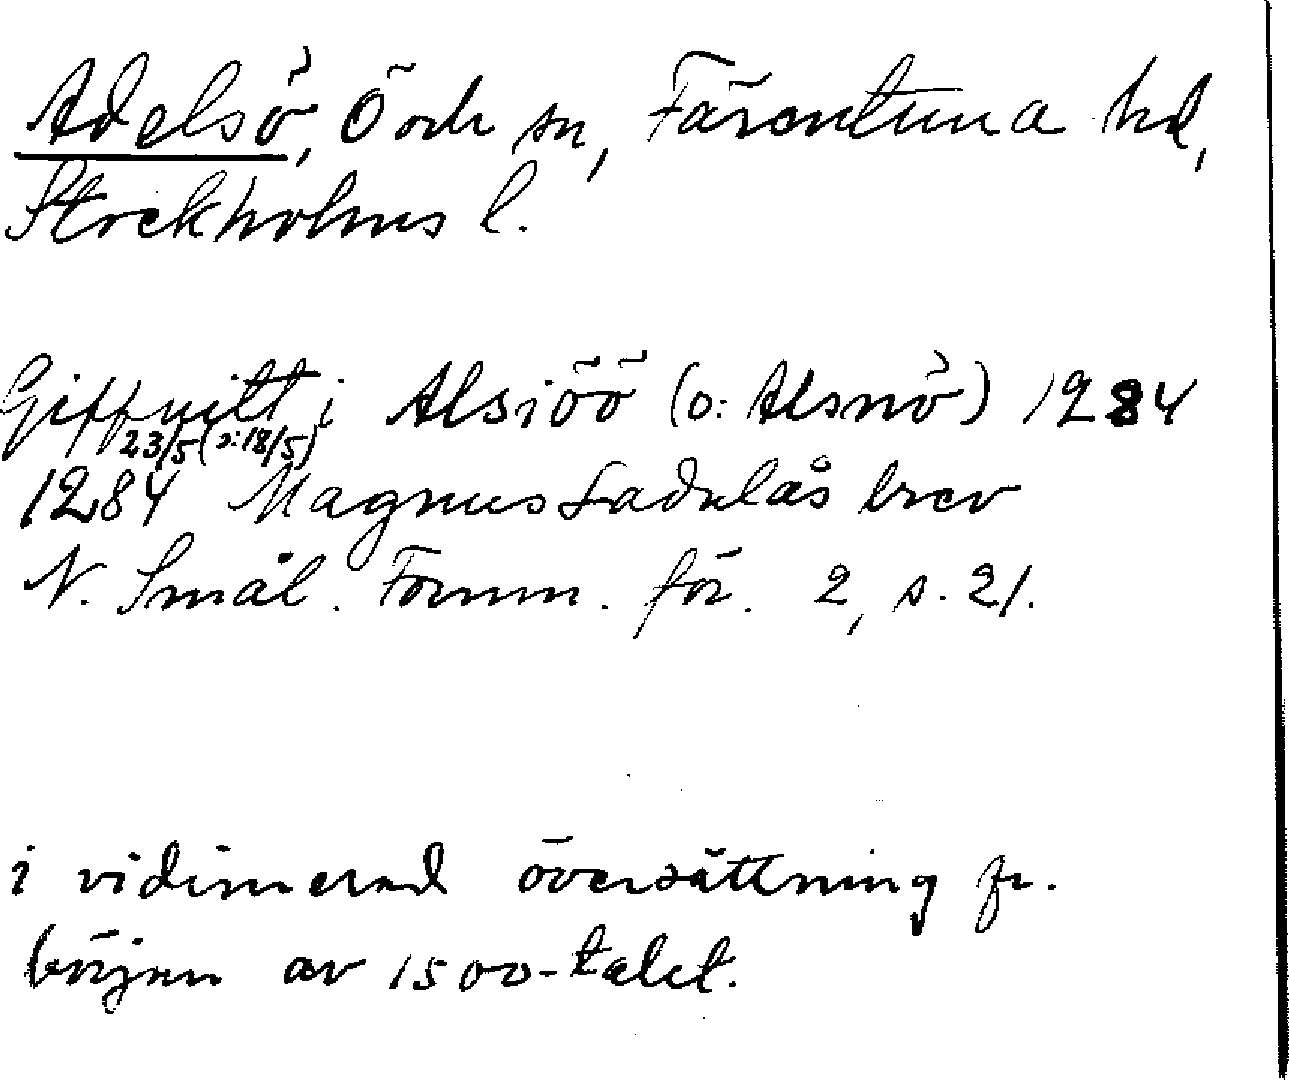 Adelsö, Ö och sn, Färentuna hd,
Stockholms l.
Giffuitt i Alsiöö (ɔ: Alsnö) 1284
23/5 (ɔ: 18/5)
1284 Magnus Ladulås brev
N. Smål. Fornm. för. 2, s. 21.
i vidimerad översättning fr.
början av 1500-talet.